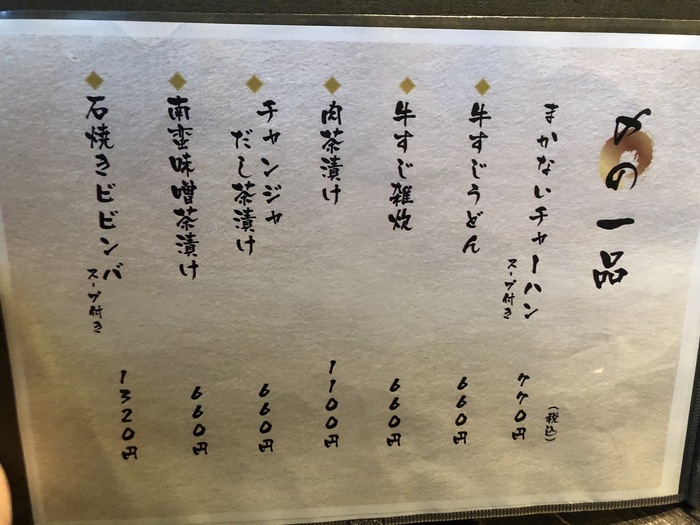 〆の一品
(税込)
まかないチャーハン
スープ付き
770円
牛すじうどん
660円
牛すじ雑炊
660円
肉茶漬け
1100円
チャンジャ
だし茶漬け
660円
南蛮味噌茶漬け
660円
石焼きビビンバ
スープ付き
1320円